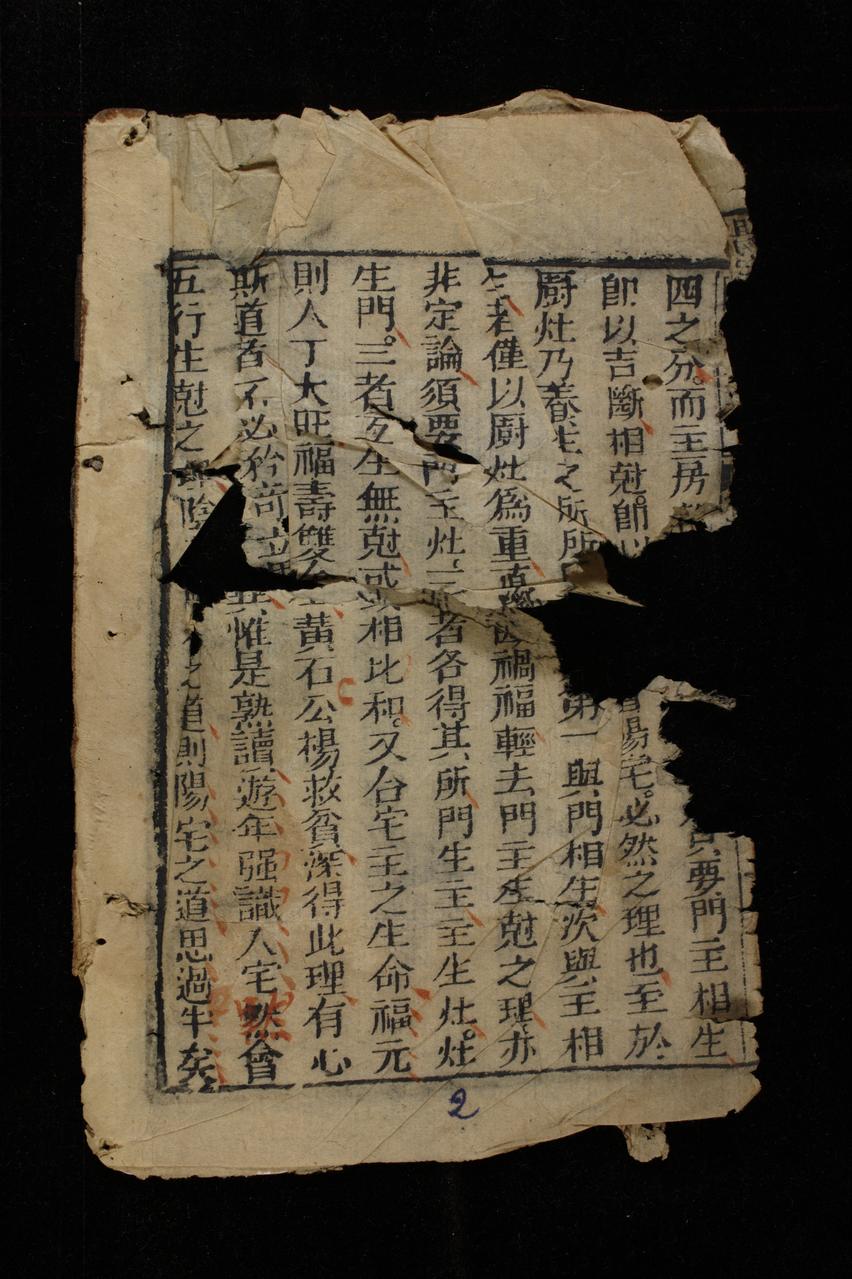 四之分。而主房只要門主相生
即以吉斷相尅。即以陽宅。必然之理也至於
廚灶乃養生之所所第一與門相生次與主相
生若僅以廚灶為重直禍福輕去門主生尅之理亦
非定論須要門主灶三者各得其所門生主主生灶。灶
生門。三者互生無尅或相比和。又合宅主之生命福元
則人丁大旺福壽雙全黃石公楊救貧深得此理有心
斯道者不必矜奇立異惟是熟讀遊年强識八宅然會
五行生尅之理陰之道則陽宅之道思過半矣
2